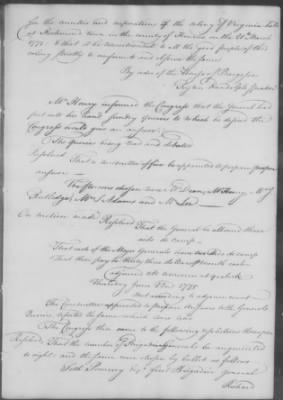 for the counties and corporations of the colony of Virginia held
at Richmond town in the county of Henrico on the 20th March
1775: & that it be recommended to all the good people of this
colony strictly to conform to and observe the same.
By order of the House of Burgesses
Peyton Randolph Speaker
Mr Henry informed the Congress that the General had
put into his hand sundry queries to which he desired the
Congress would give an answer.
The queries being read and debated
Resolved
That a committee of five be appointed to prepare proper
answers
The persons chosen were Mr Deane, Mr Henry, Mr J
Rutledge, Mr S Adams and Mr Lee
On motion made Resolved
That the General be allowed three
aids de camp
That each of the Major Generals have two aids de camp
That their pay be thirty three dollars
Adjourned till tomorrow at 9 o'clock
Thursday June 22d 1775
Met according to adjournment
The Committee appointed to prepare answers to the General's
Queries, reported the same which were
The Congress then came to the following resolutions thereupon
Resolved, That the number of Brigadiers General be augmented
to eight, and the same were chosen by ballot as follows
Seth Pomeroy Esqr first Brigadier general
Richard